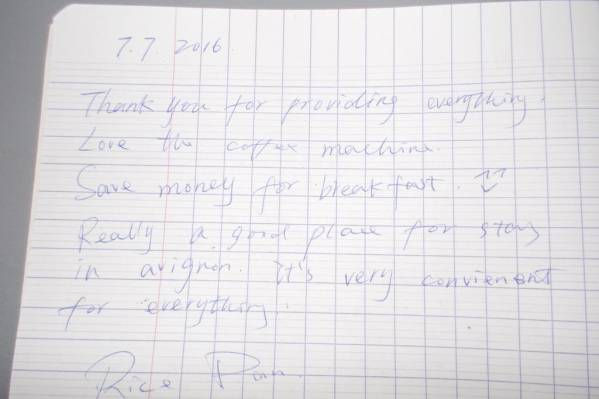 7.7.2016.
Thank you for providing everything.
Love the coffee machine.
Save money for breakfast.
Really a good place for stay
in avignon. It's very convienent
for everything.
Rice